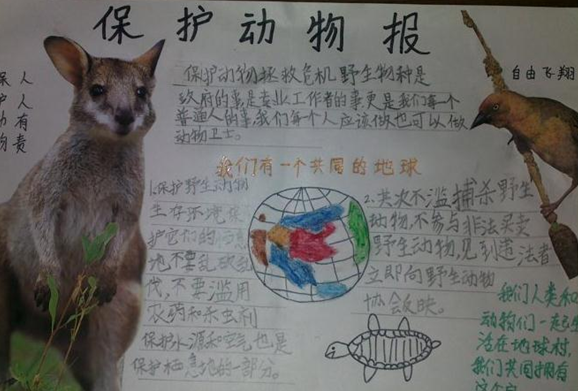 保护动物报
保护动物人人有责
自由飞翔
保护动物拯救危机野生物种是
政府的事是专业工作者的事更是我们每一个
普通人的事,我们每个人应该做也可以做
动物卫士。
我们有一个共同的地球
1.保护野生动物
生存环境保
护它们的
地不要乱砍乱
伐,不要滥用
农药和杀虫剂
保护水源和空气也是
保护栖息地的一部分。
2.其次不滥捕杀野生
动物,不参与非法买卖
野生动物,见到违法者
立即向野生动物
协会反映。
我们人类和
动物们一起生
活在地球村,
我们共同拥有
这个